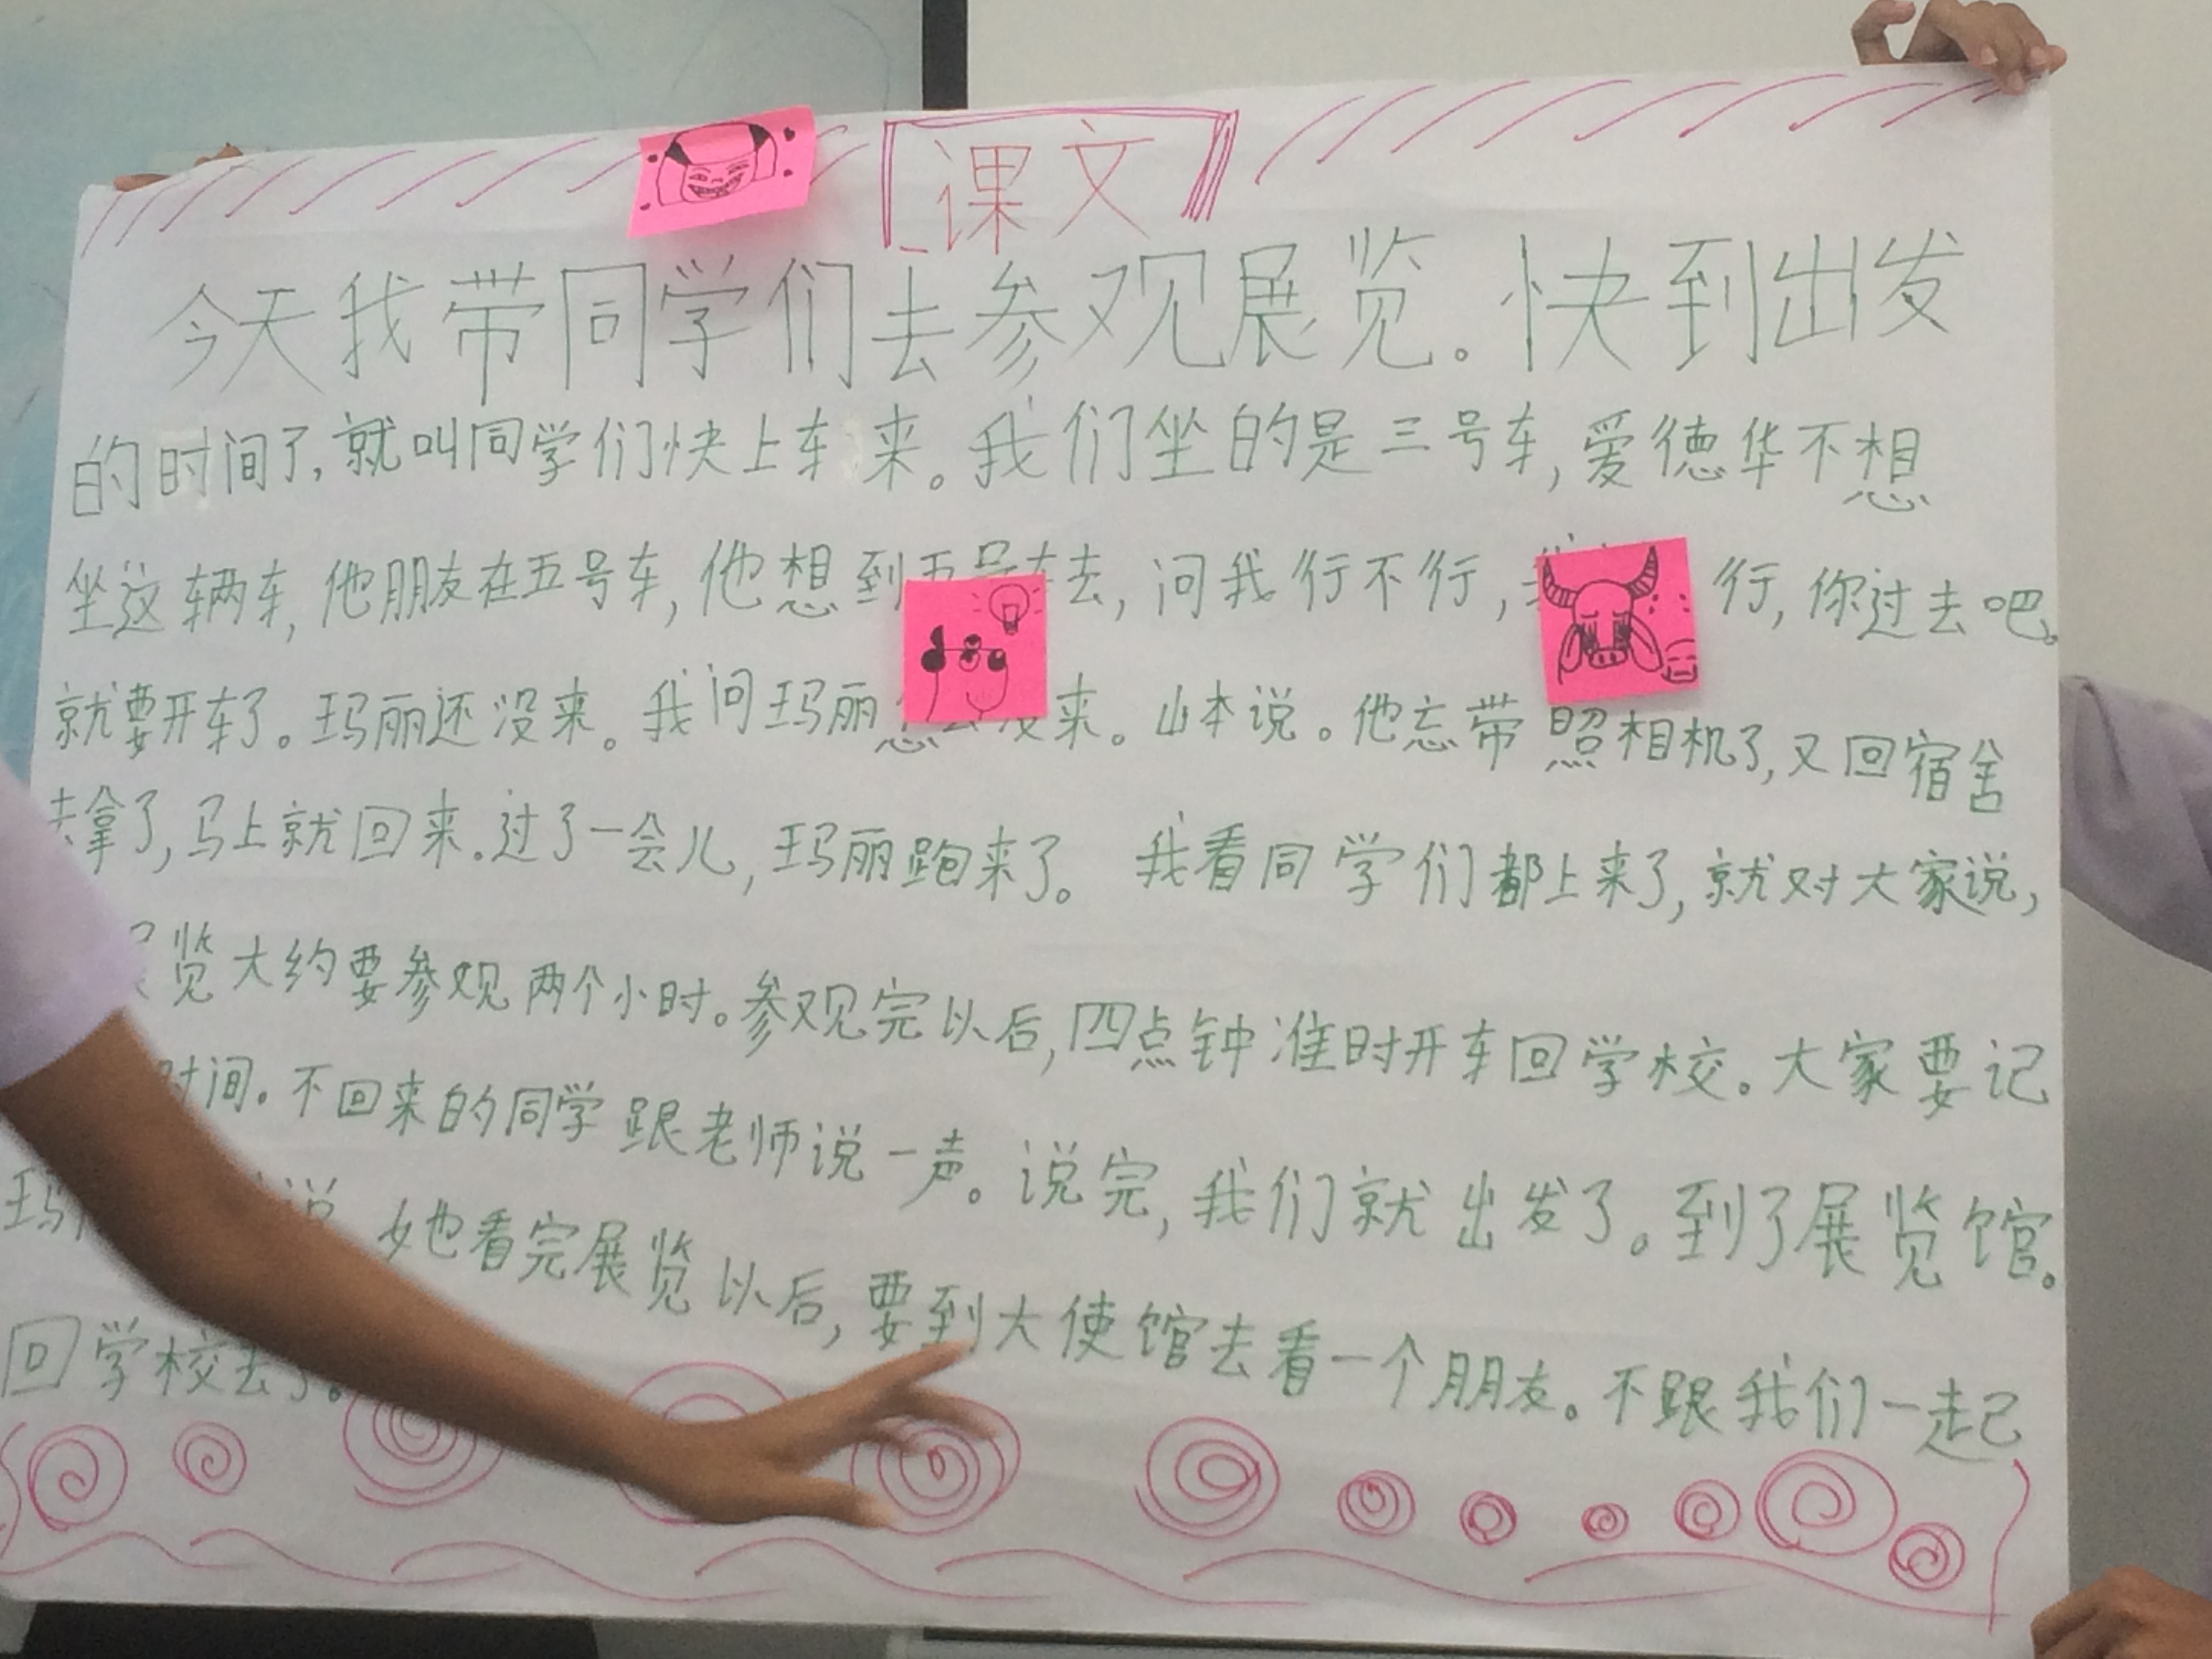 课文
今天我带同学们去参观展览。快到出发
的时间了,就叫同学们快上车来。我们坐的是三号车,爱德华不想
坐这辆车,他朋友在五号车,他想到五号车去,问我行不行,我 行,你过去吧。
就要开车了。玛丽还没来。我问玛丽怎么没来。山本说。他忘带照相机了,又回宿舍
去拿了,马上就回来.过了一会儿,玛丽跑来了。 我看同学们都上来了,就对大家说,
展览大约要参观两个小时。参观完以后,四点钟准时开车回学校。大家要记
时间。不回来的同学跟老师说一声。说完,我们就出发了。到了展览馆。
玛 说 她看完展览以后,要到大使馆去看一个朋友。不跟我们一起
回学校去了。